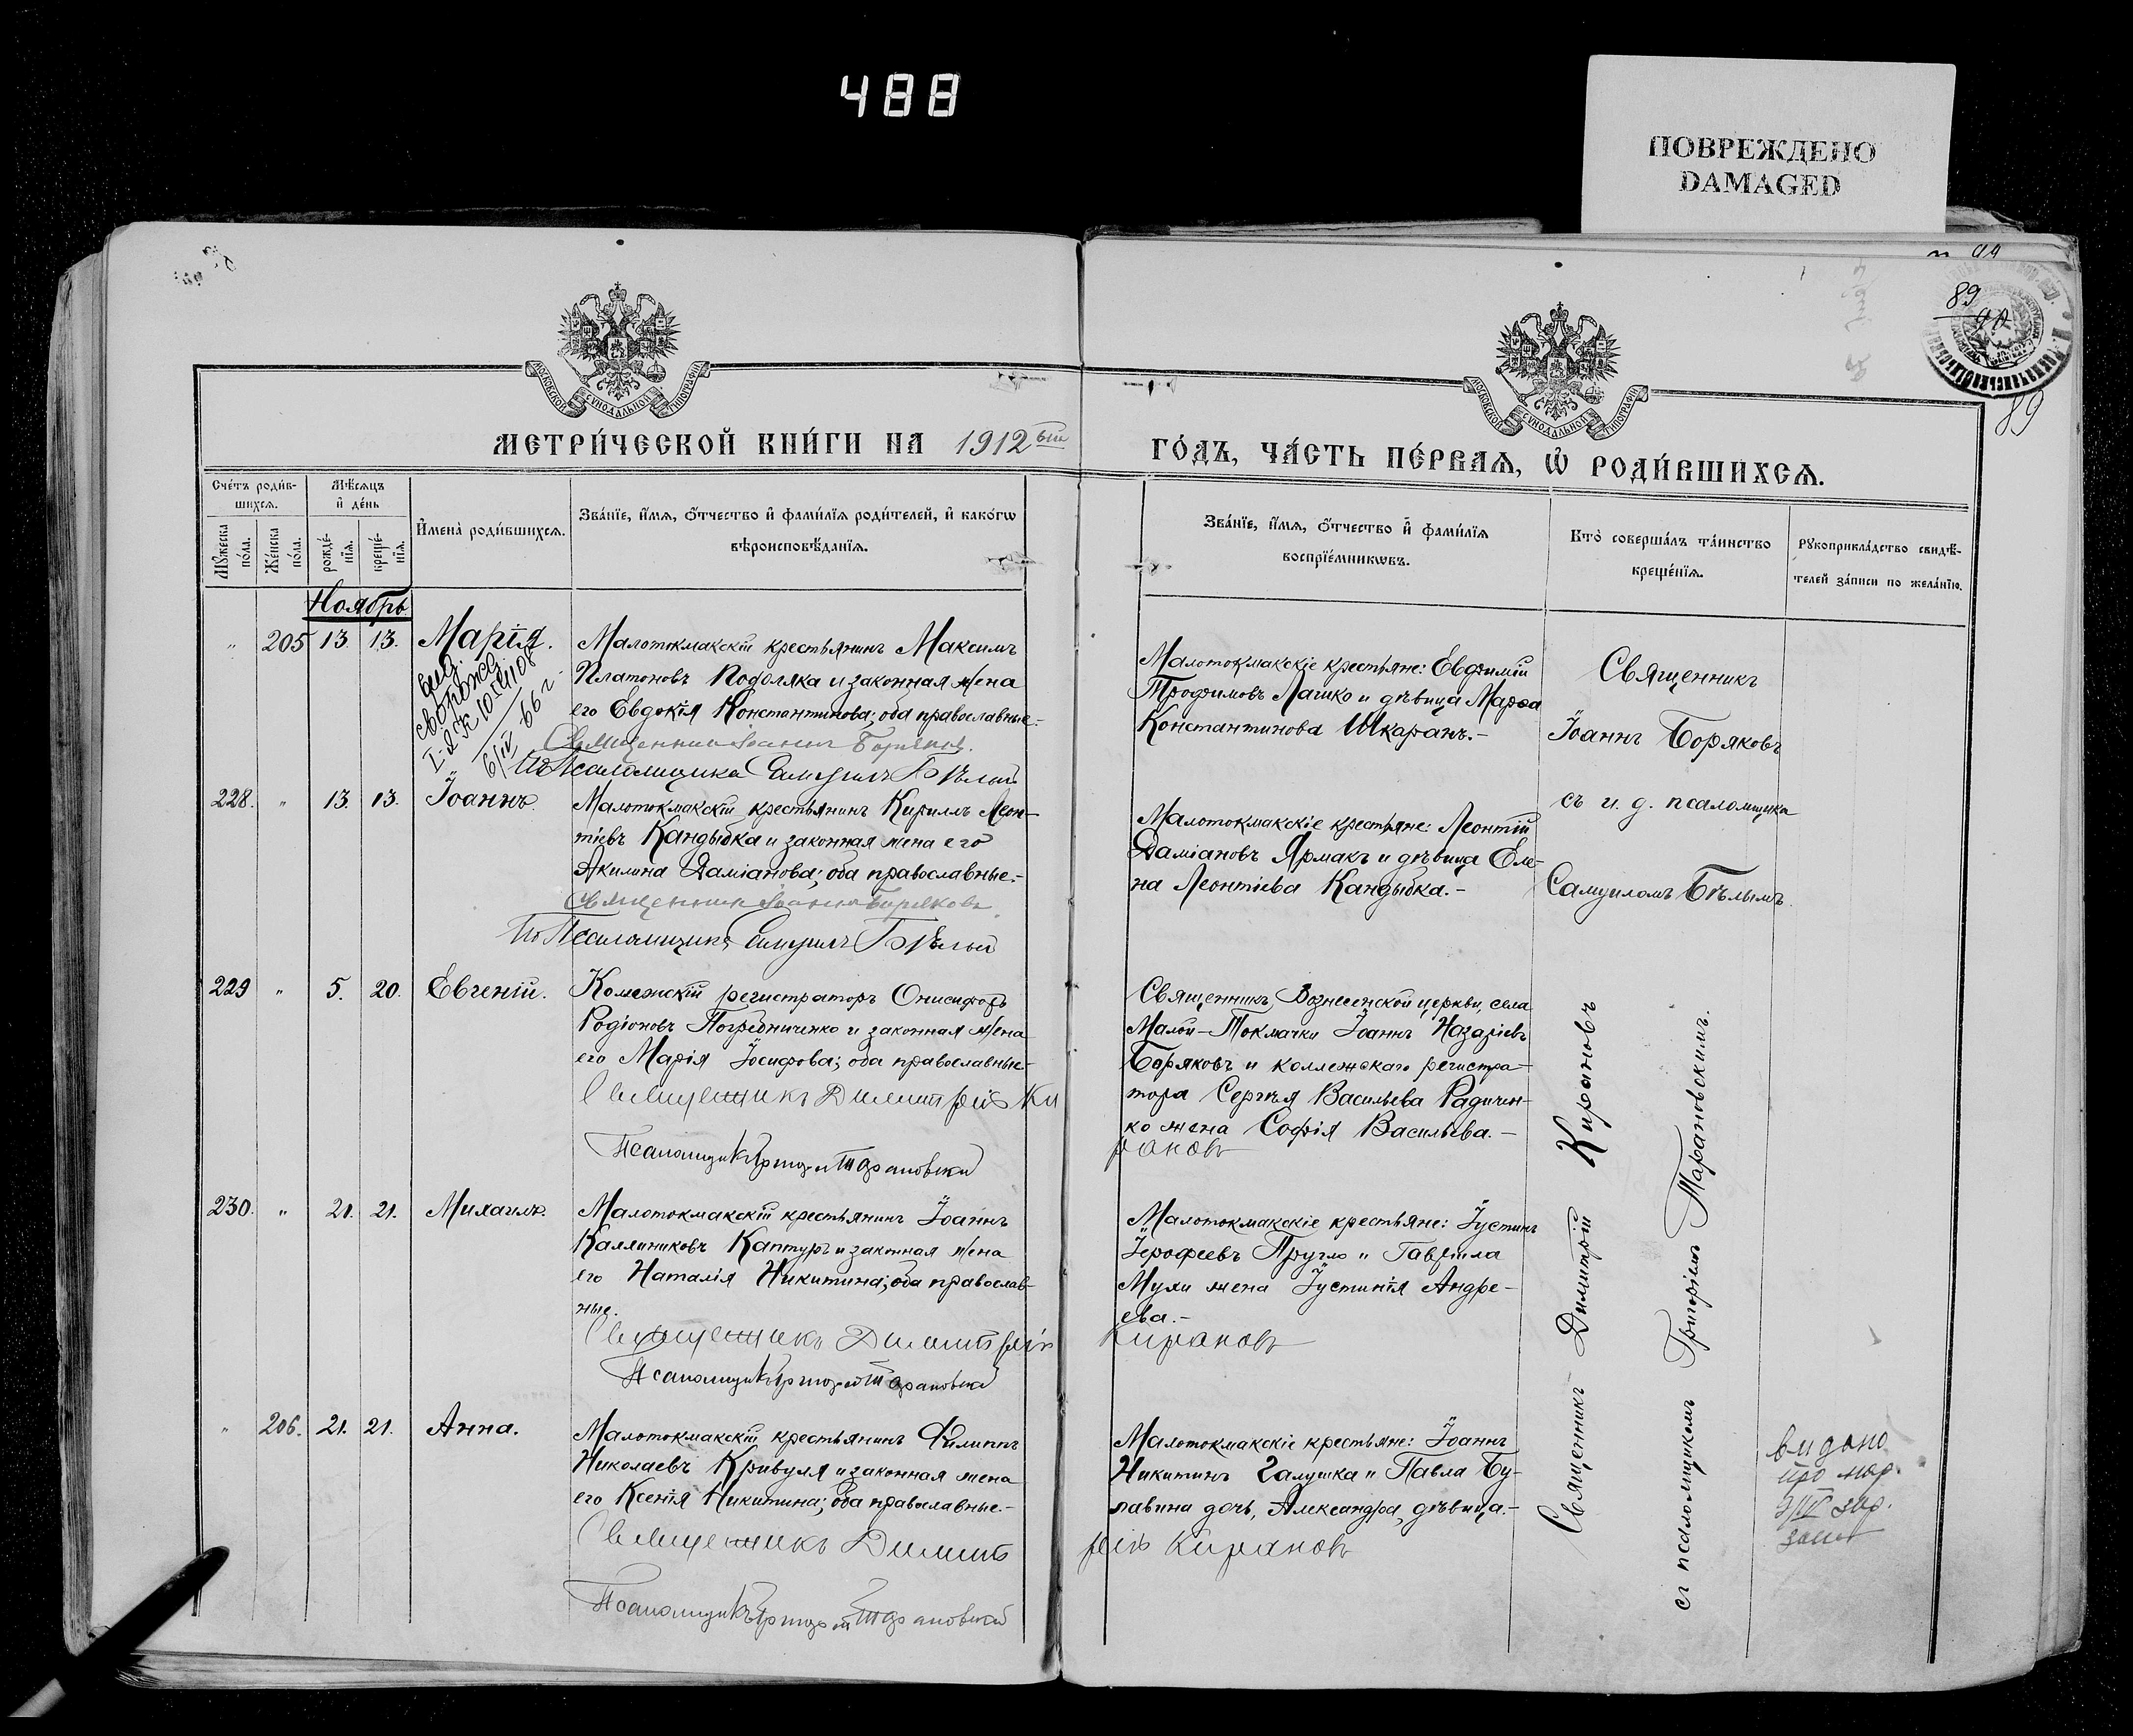 488
ПОВРЕЖДЕНО
DAMAGED
89
89
МОСКОВСКОЙ СѴНОДАЛЬНОЙ ТИПОГРАФІИ
МОСКОВСКОЙ СѴНОДАЛЬНОЙ ТИПОГРАФІИ
МЕТРИ́ЧЕСКОЙ КНИ́ГИ НА 1912ый
ГО́ДЪ, ЧА́СТЬ ПЕ́РВАѦ, Ѡ҆ РОДИ́ВШИХСѦ.
Сче́тъ роди́в-
шихсѧ.
Мѣ́сѧцъ
и҆ де́нь
Мꙋ́жеска
по́ла.
Же́нска
по́ла.
рожде́-
нїѧ.
креще́-
нїѧ.
И҆мена̀ роди́вшихсѧ.
Зва́нїе, и҆́мѧ, ѻ҆́тчество и҆ фами́лїѧ роди́телей, и҆ како́гѡ
вѣроисповѣ́данїѧ.
Зва́нїе, и҆́мѧ, ѻ҆́тчество и҆ фами́лїѧ
воспрїе́мникѡвъ.
Кто̀ соверша́лъ та́инство
креще́нїѧ.
Рꙋкоприкла́дство свидѣ́-
телей за́писи по жела́нїю.
Ноябрь.
„ 205 13. 13. Марія.
Малотокмакскій крестьянинъ Максимъ
Платоновъ Подоляка и законная жена
его Евдокія Константинова; оба православные.-
Священник Іоанн Боряков.
ИдПсаломщика Самуилъ Бѣлый
Малотокмакскіе крестьяне: Евфимій
Трофимовъ Лашко и дѣвица Марфа
Константинова Шкаранъ.-
Священникъ
Іоаннъ Боряковъ
съ и. д. псаломщика
Самуиломъ Бѣлымъ
228. „ 13. 13. Іоаннъ.
Малотокмакскій крестьянинъ Кириллъ Леон-
тіевъ Кандыбка и законная жена его
Акилина Даміанова; оба православные.-
Священник Іоаннъ Боряковъ
ИдПсаломщика Самуилъ Бѣлый
Малотокмакскіе крестьяне: Леонтій
Даміановъ Ярмакъ и дѣвица Еле-
на Леонтіева Кандыбка.-
229 „ 5. 20. Евгеній.
Колежскій регистраторъ Онисифоръ
Родіоновъ Погребниченко и законная жена
его Марія Іосифова; оба православные.-
Священникъ Димитрій Ки
раковъ
Псаломщикъ Григорій Тарановскій
Священникъ Вознесенской церкви, села
Малой-Токмачки Іоаннъ Назаріевъ
Боряковъ и коллежскаго регистра-
тора Сергѣя Васильева Радичен-
ко жена Софія Васильева.-
230. „ 21. 21. Михаилъ.
Малотокмакскій крестьянинъ Іоаннъ
Каллиниковъ Каптуръ и законная жена
его Наталія Никитина; оба православ-
ные.
Священникъ Димитрій
Кирановъ
Псаломщикъ Григорій Тарановскій
Малотокмакскіе крестьяне: Іустинъ
Іерофеевъ Пругло и Гавріила
Мули жена Іустинія Андре-
ева.-
„ 206. 21. 21. Анна.
Малотокмакскій крестьянинъ Филиппъ
Николаевъ Кривуля и законная жена
его Ксенія Никитина; оба православные.-
Священникъ Димит
рій Кирановъ
Псаломщикъ Григорій Тарановскій
Малотокмакскіе крестьяне: Іоаннъ
Никитинъ Галушка и Павла Бу-
лавина дочь, Александра, дѣвица.-
Священникъ Димитрій Кирановъ
съ псаломщикомъ Григоріемъ Тарановскимъ.
видано
про нар.